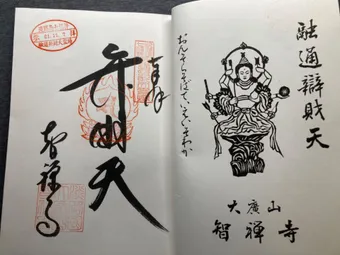 融通辯財天
おんそらそばていえいそわか
大廣山
智禅寺
奉拝
弁財天
智禅寺